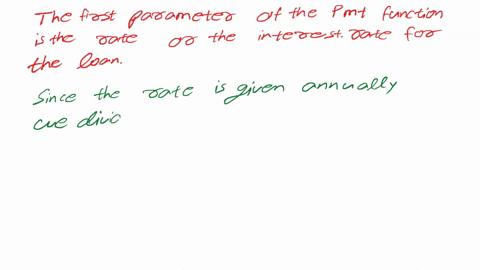 The first parameter of the Pmt function
is the rate or the interest rate for
the loan.
Since the rate is given annually
we divic